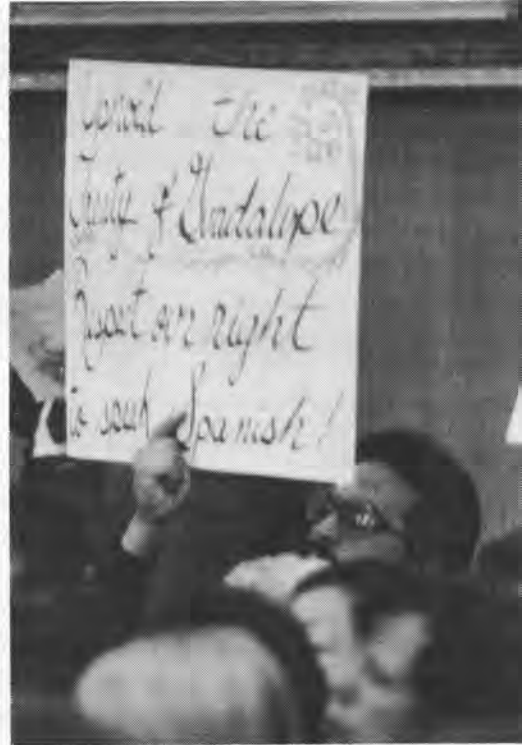 Uphold the
Treaty of Guadalupe
Respect our right
to speak Spanish!